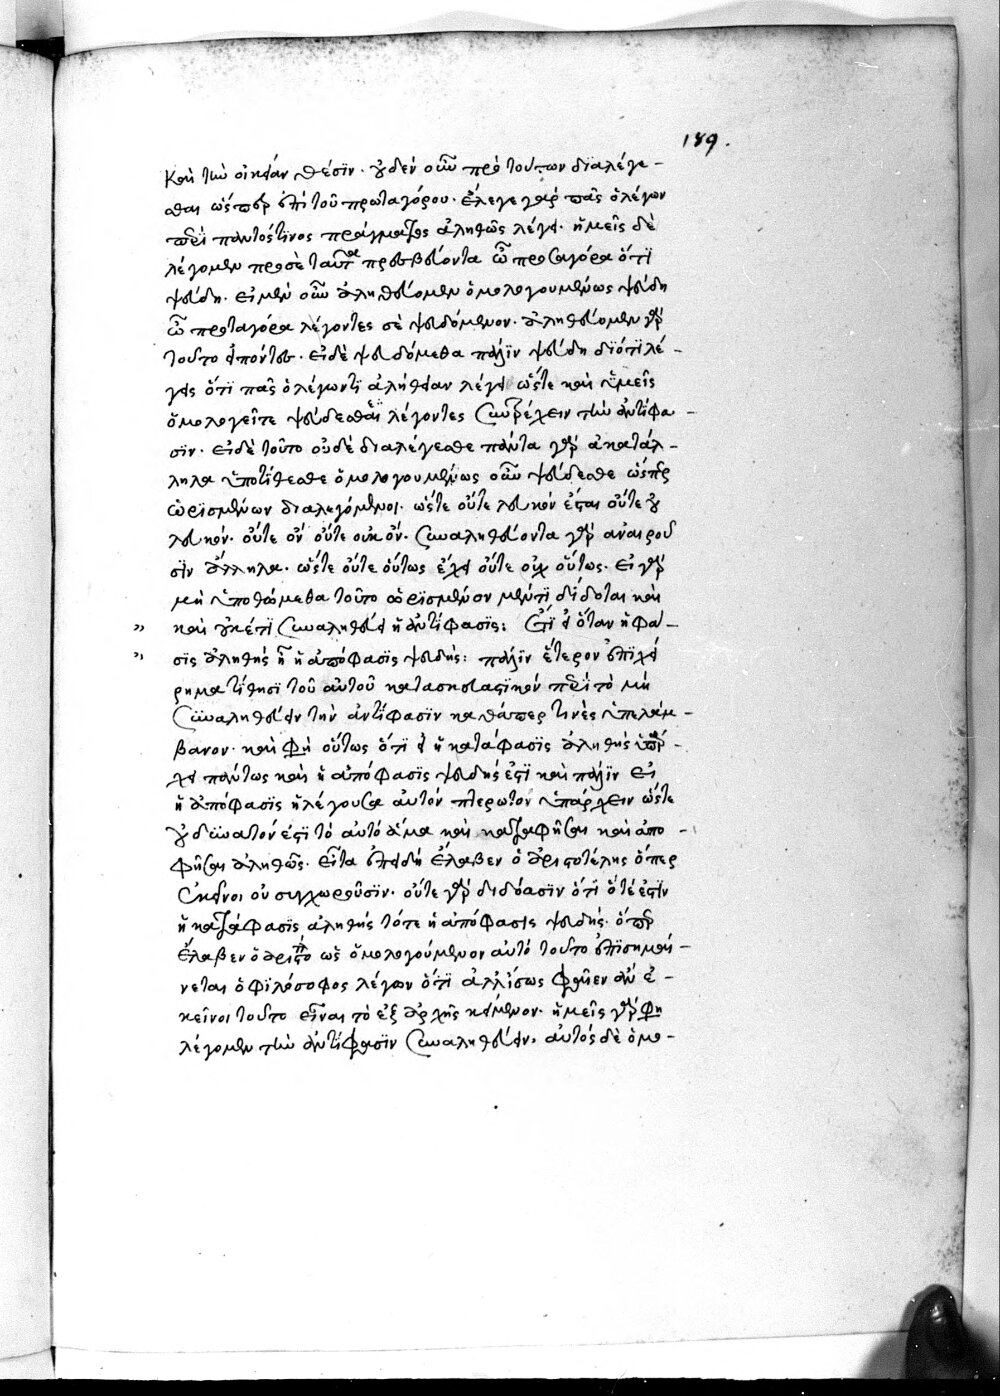 189.
καὶ τὴν οἰκείαν θέσϊν. οὐδὲν οὖν πρὸ τούτων διαλέγε-
σθαι ὥσπερ ἐπὶ τοῦ πρωταγόρου. ἔλεγε γὰρ πᾶς ὁ λέγων
περὶ παντός τινος πράγματος ἀληθῶς λέγει. ἡμεῖς δὲ
λέγομεν πρὸς σὲ ταῦτα πρεσβεύοντα ὦ πρωταγόρα ὅτι
ψεύδη. εἰ μὲν οὖν ἀληθεύομεν ὁμολογουμένως ψεύδη
ὦ πρωταγόρα λέγοντές σε ψευδόμενον. ἀληθεύομεν γὰρ
τοῦτο εἰπόντες. εἰ δὲ ψευδόμεθα πάλϊν ψεύδη διότι λέ-
γεις ὅτι πᾶς ὁ λέγων τι ἀλήθειαν λέγει ὥστε καὶ ὑμεῖς
ὁμολογεῖτε ψεύδεσθαι λέγοντες συντρέχειν τὴν ἀντίφα-
σιν. εἰ δὲ τοῦτο οὐδὲ διαλέγεσθε πάντα γὰρ ἀκατάλ-
ληλα ὑποτίθεσθε ὁμολογουμένως οὖν ψεύδεσθε ὥσπερ
ὡρισμένων διαλεγόμενοι. ὥστε οὔτε λευκόν ἔσται οὔτε οὐ
λευκόν. οὔτε ὂν οὔτε οὐκ ὄν. συναληθεύοντα γὰρ ἀναιροῦ
σιν ἄλληλα. ὥστε οὔτε οὕτως ἔχει οὔτε οὐχ οὕτως. εἰ γὰρ
μὴ ὑποθώμεθα τοῦτο ὡρϊσμένον μέντι δίδοται καὶ
„ καὶ οὐκέτι συναληθεύει ἡ ἀντίφασϊς: Ἔτϊ εἰ ὅταν ἡ φά-
„ σϊς ἀληθὴς ἦ ἡ ἀπόφασϊς ψευδής: πάλϊν ἕτερον ἐπϊχεί
ρημα τίθησϊ τοῦ αὐτοῦ κατασκευαστϊκόν περὶ τὸ μὴ
συναληθεύειν τὴν ἀντίφασϊν καθάπερ τινὲς ὑπελάμ-
βανον. καὶ φησὶ οὕτως ὅτι εἰ ἡ κατάφασϊς ἀληθὴς ὑπάρ-
χει πάντως καὶ ἡ ἀπόφασϊς ψευδής ἐστϊ καὶ πάλϊν εἰ
ἡ ἀπόφασϊς ἡ λέγουσα αὐτὸν πτερωτὸν ὑπάρχειν ὥστε
οὐ δυνατόν ἐστϊ τὸ αὐτὸ ἅμα καὶ καταφῆσαι καὶ ἀπο-
φῆσαι ἀληθῶς. εἶτα ἐπειδὴ ἔλαβεν ὁ ἀριστοτέλης ὅπερ
ἐκεῖνοι οὐ συγχωροῦσϊν. οὔτε γὰρ διδόασϊν ὅτι ὅτέ ἐστιν
ἡ κατάφασϊς ἀληθής τότε ἡ ἀπόφασις ψευδής. ὅπερ
ἔλαβεν ὁ ἀριστο ὡς ὁμολογούμενον αὐτὸ τοῦτο ἐπϊσημαί-
νεται ὁ φϊλόσοφος λέγων ὅτι ἀλλ' ἴσως φαῖεν ἂν ἐ-
κεῖνοι τοῦτο εἶναι τὸ ἐξ ἀρχῆς κείμενον. ἡμεῖς γὰρ φησὶ
λέγομεν τὴν ἀντίφασϊν συναληθεύειν, αὐτὸς δὲ ὁμο-